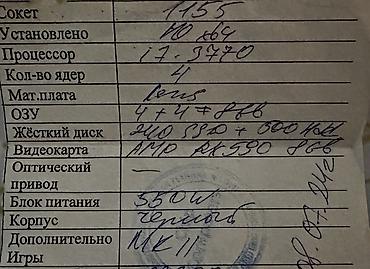 Сокет 1155
Установлено 10 x64
Процессор i7-3770
Кол-во ядер 4
Мат.плата
ОЗУ 4+4=8Gb
Жёсткий диск 240 SSD + 500 Hdd
Видеокарта AMD RX590 8Gb
Оптический
привод —
Блок питания 550W
Корпус Черный
Дополнительно MK II
Игры
07.24г